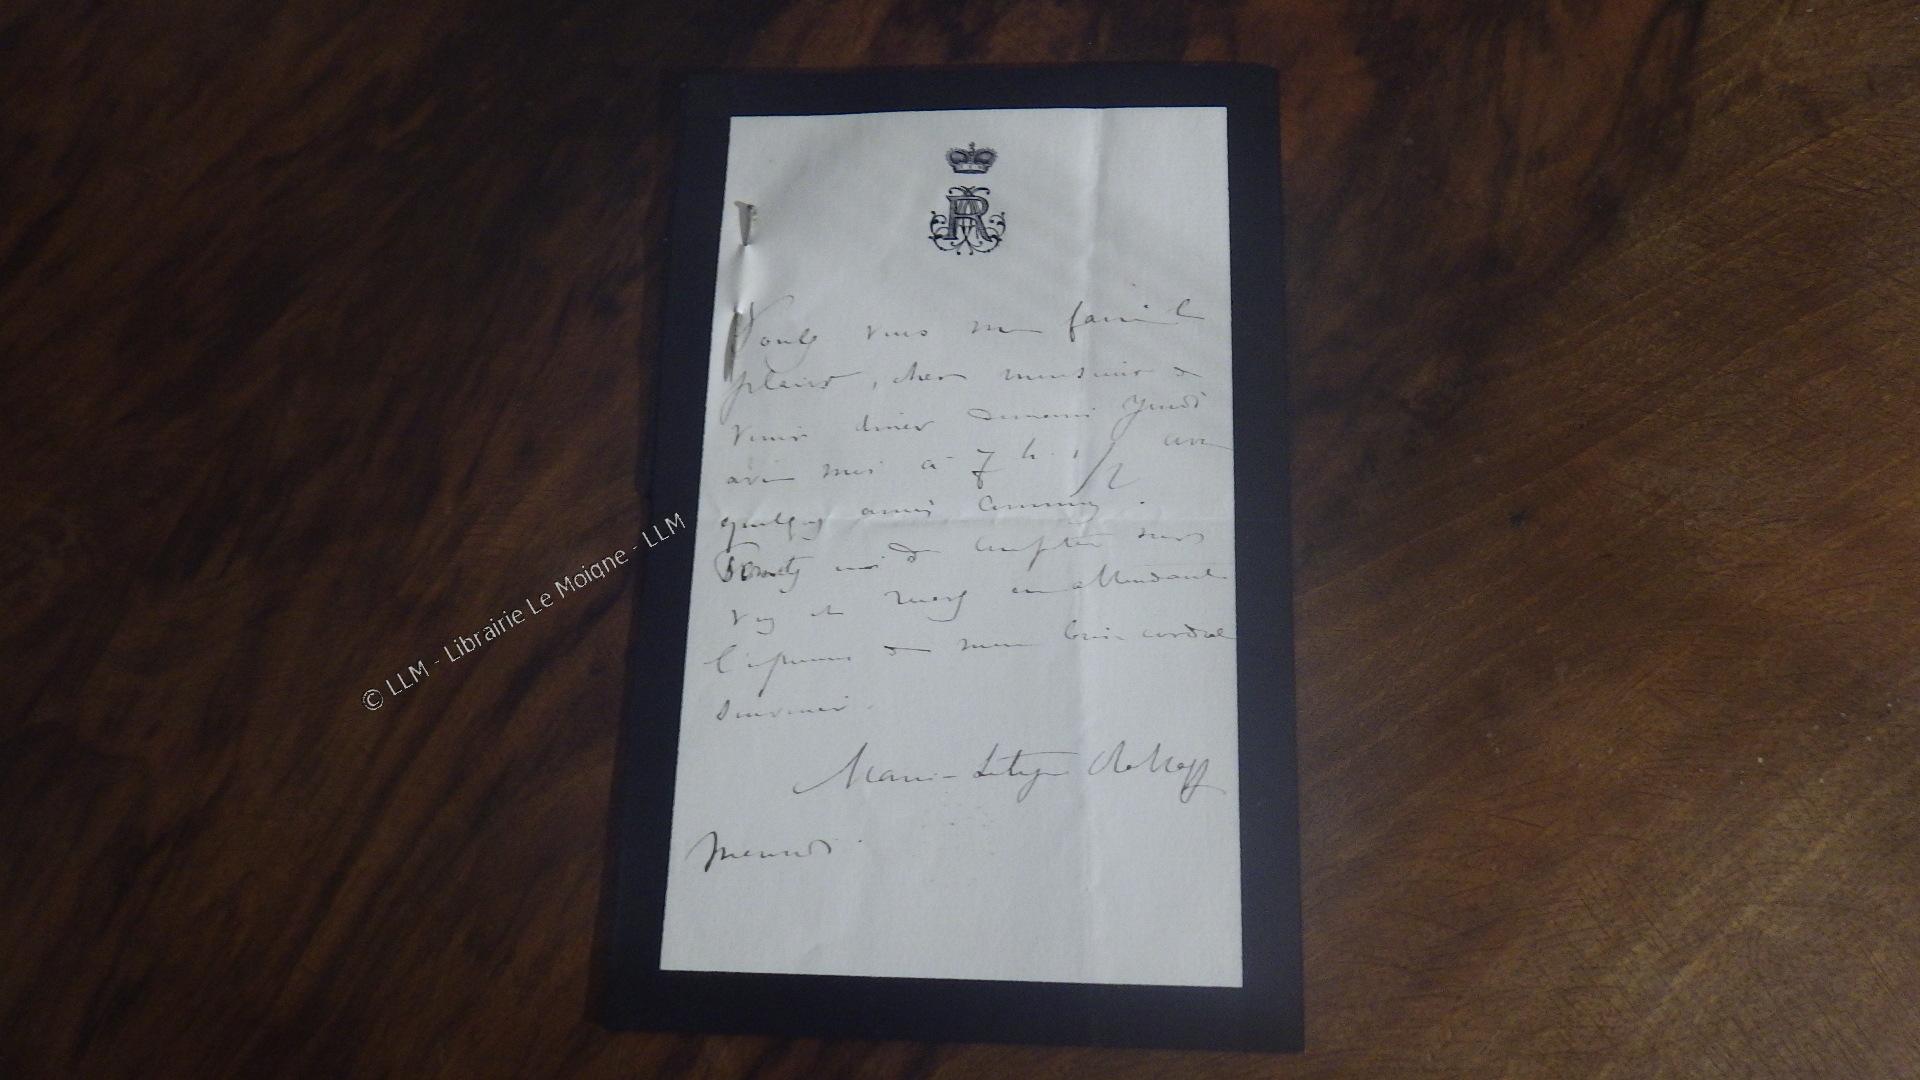 R
Voulez vous me faire le
plaisir, cher monsieur de
venir diner demain Jeudi
avec moi à 7 h. 1/2 avec
quelques amis
Permettez moi de compter sur
vous et recevez en attendant
l'expression de mon bien cordial
souvenir.
Marie-Létizia de Rute
Mercredi.
© LLM - Librairie Le Moigne - LLM